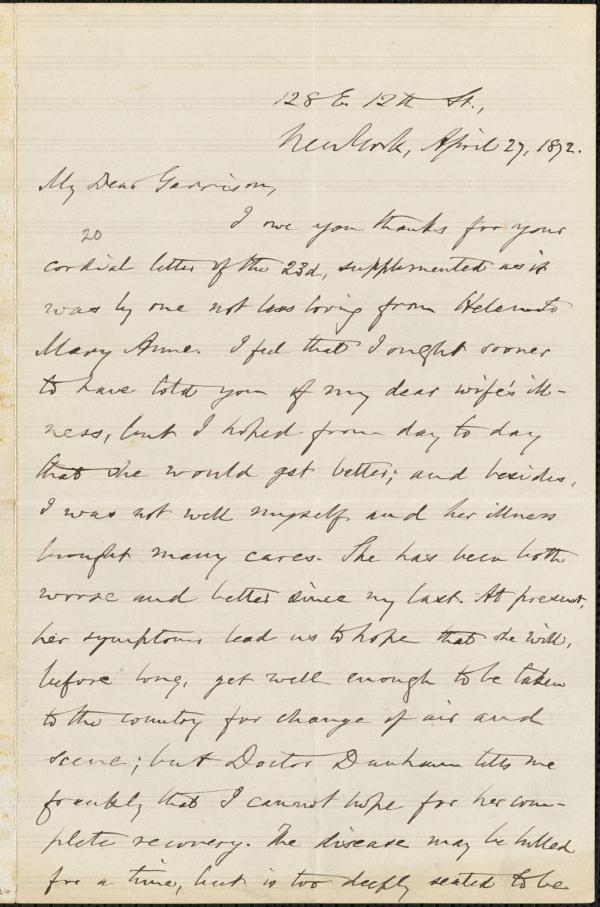 128 E. 12th St.,
New York, April 27, 1872.
My Dear Garrison,
I owe you thanks for your
20
cordial letter of the 23d, supplemented as it
was by one not less loving from Helen to
Mary Anne. I feel that I ought sooner
to have told you of my dear wife's ill-
ness, but I hoped from day to day
that she would get better; and besides,
I was not well myself and her illness
brought many cares. She has been both
worse and better since my last. At present,
her symptoms lead us to hope that she will,
before long, get well enough to be taken
to the country for change of air and
scene; but Doctor Dunham tells me
frankly that I cannot hope for her com-
plete recovery. The disease may be lulled
for a time, but is too deeply seated to be